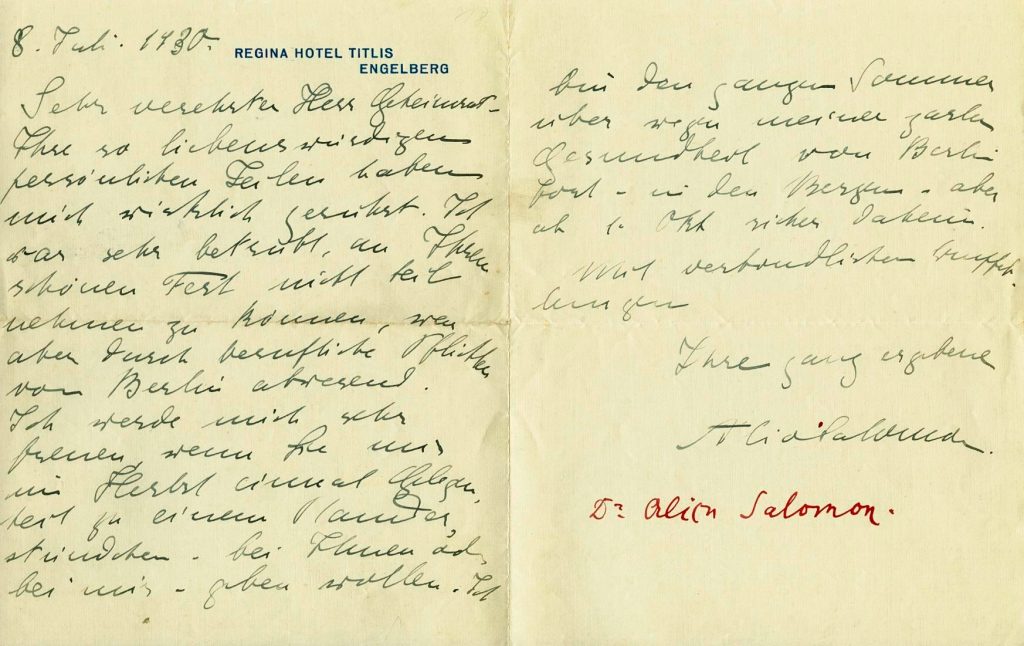 8. Juli. 1930.
REGINA HOTEL TITLIS
ENGELBERG
Sehr verehrter Herr Geheimrat -
Ihre so liebenswürdigen
persönlichen Zeilen haben
mich wirklich gerührt. Ich
war sehr betrübt, an Ihrem
schönen Fest nicht teil
nehmen zu können, war
aber durch berufliche Pflichten
von Berlin abwesend.
Ich werde mich sehr
freuen, wenn Sie mir
im Herbst einmal Gelegen,
heit zu einem Plauder,
stündchen - bei Ihnen od.
bei mir - geben wollen. Ich
bin den ganzen Sommer
über wegen meiner zarten
Gesundheit von Berlin
fort - in den Bergen - aber
ab 1. Okt sicher daheim.
Mit verbindlichen Empfeh
lungen
Ihre ganz ergebene
Alice Salomon.
Dr Alice Salomon.